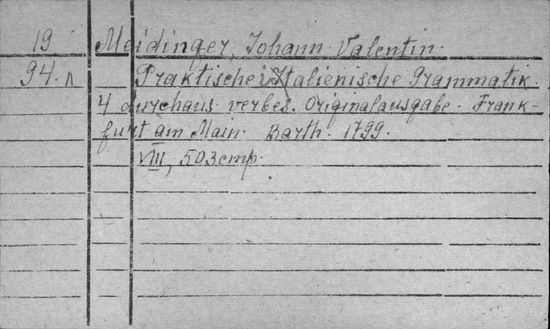 19 Meidinger, Johann Valentin.
94. л Praktische Italienische Grammatik.
4 durchaus verbes. Originalausgabe. Frank-
furt am Main. Barth. 1799.
VIII, 503 cmp.